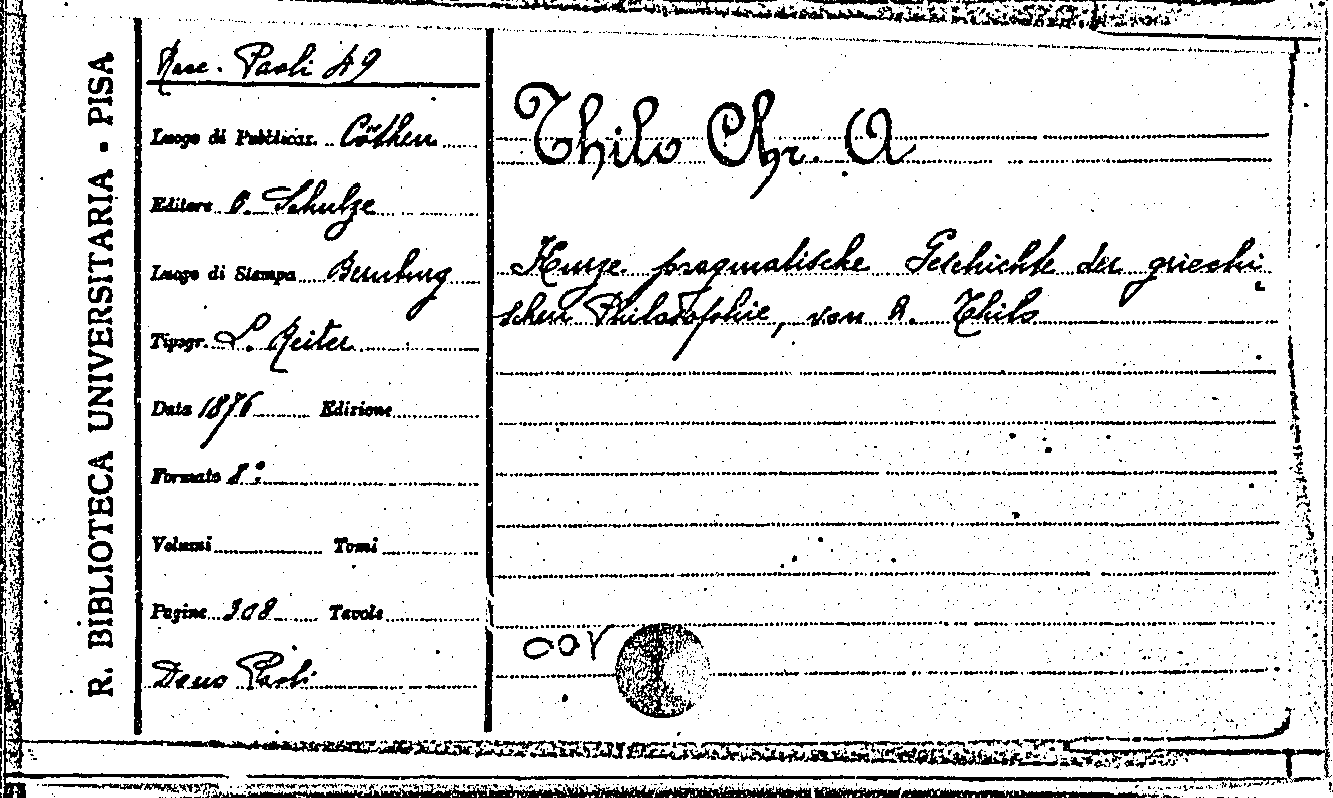 R. BIBLIOTECA UNIVERSITARIA - PISA
Racc. Paoli 49
Luogo di Pubblicaz. Cöthen
Editore O. Schulze
Luogo di Stampa Bernburg
Tipogr. L. Reiter
Data 1876 Edizione
Formato 8°
Volumi Tomi
Pagine 308 Tavole
Dono Paoli
Thilo Chr. A
Kurze pragmatische Geschichte der griechi
schen Philosophie, von A. Thilo